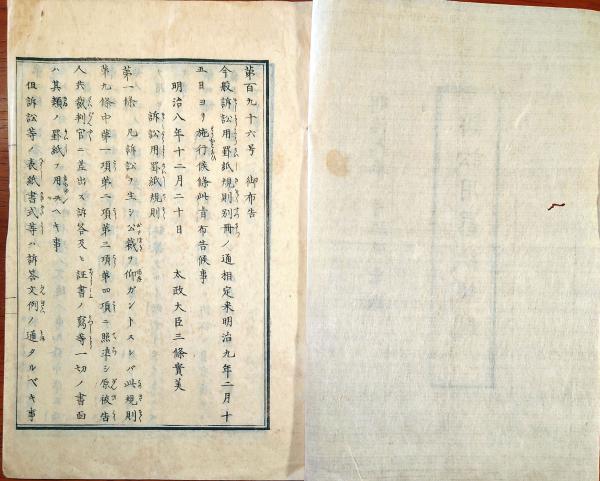 第百九十六号　御布告
今般訴訟用罫紙規則別冊ノ通相定来明治九年二月十
五日ヨリ施行候條此旨布告候事
明治八年十二月二十日　太政大臣三條實美
訴訟用罫紙規則
第一條　凡訴訟ヲ生シ公裁ヲ仰ガントスレバ此規則
第九條中第一項第二項第三項第四項ニ照準シ原被告
人共裁判官ニ差出ス訴答及ヒ証書ノ寫等一切ノ書面
ハ其類ノ罫紙ヲ用フヘキ事
但訴訟等ノ表紙書式等ハ訴答文例ノ通タルベキ事